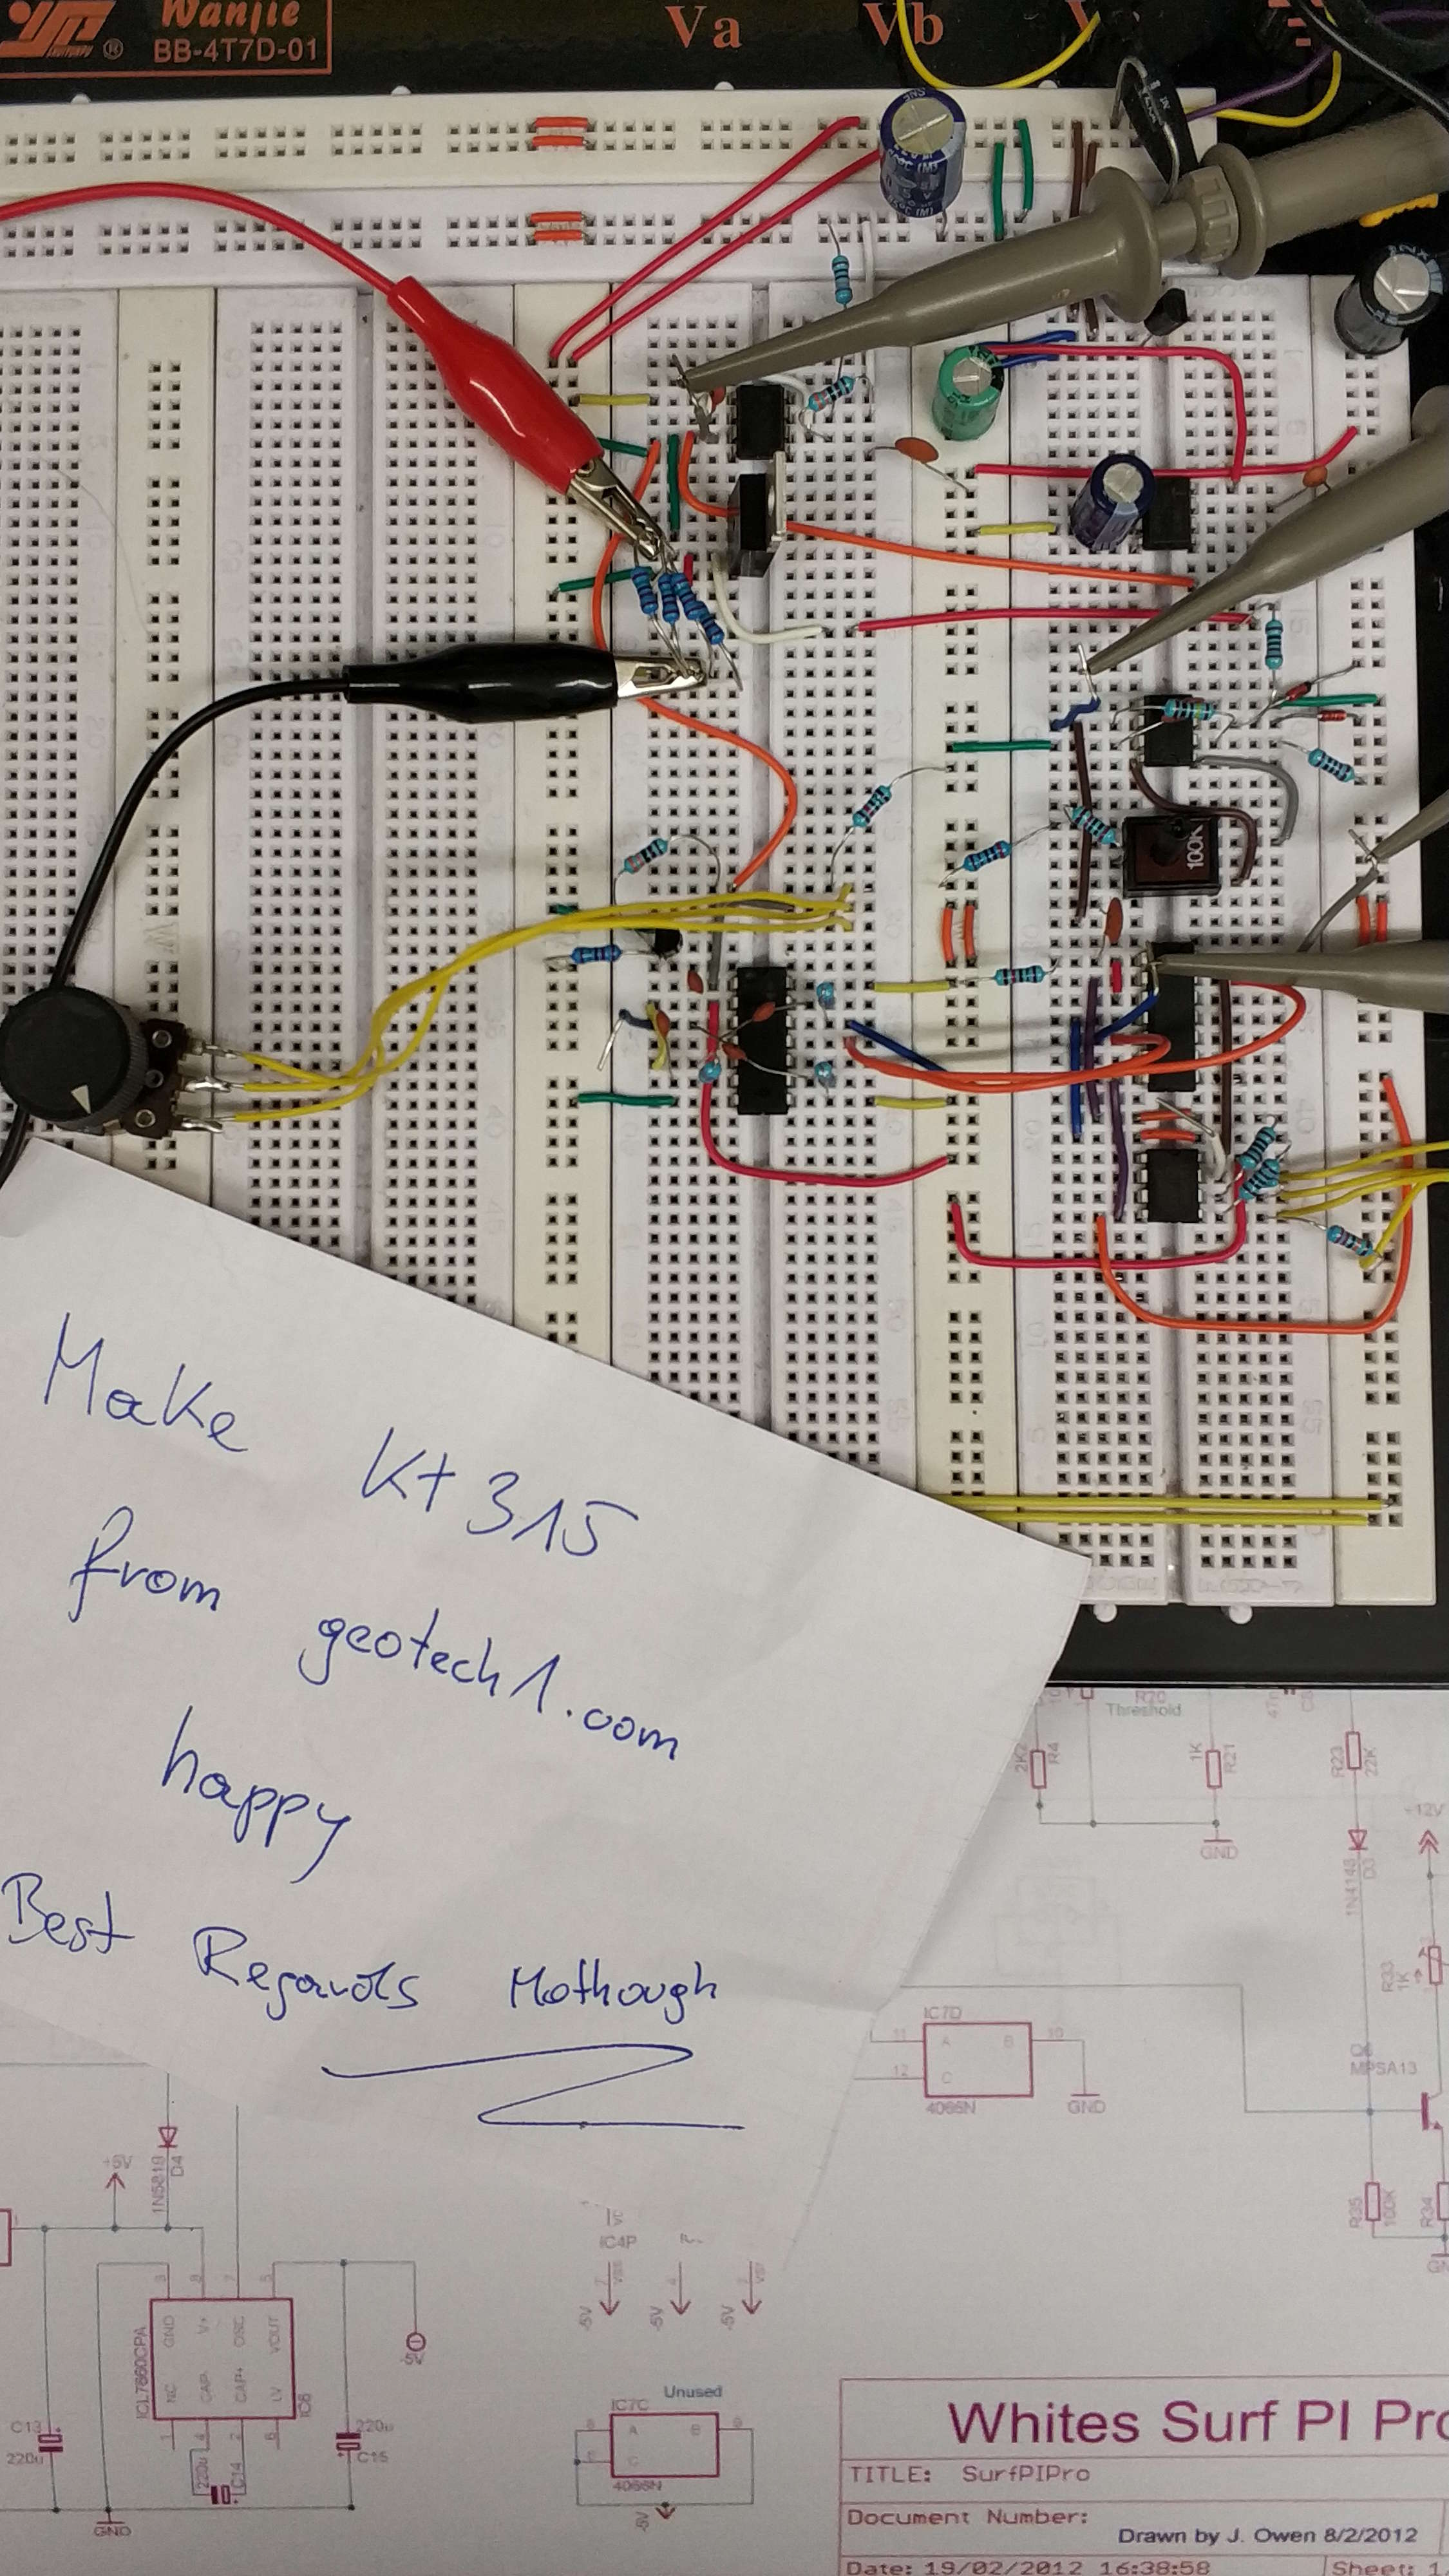 Wanjie
BB-4T7D-01
Va
Vb
100K
Make Kt 315
from geotech1.com
happy
Best Regards Mothough
Threshold
R20
2K2
R4
1K
R21
R23
22K
GND
+12V
1N4148
D3
R33
1K
IC7D
11
A
B
10
12
C
4066N
GND
Q6
MPSA13
R35
100K
R34
+5V
1N5819
D4
IC4P
-5V
-5V
-5V
ICL7660CPA
GND
V+
OSC
VOUT
NC
CAP-
CAP+
LV
IC6
C13
220u
220u
C14
220u
C15
GND
Unused
IC7C
A
B
C
4066N
-5V
Whites Surf PI Pro
TITLE: SurfPIPro
Document Number:
Drawn by J. Owen 8/2/2012
Date: 19/02/2012 16:38:58
Sheet: 1